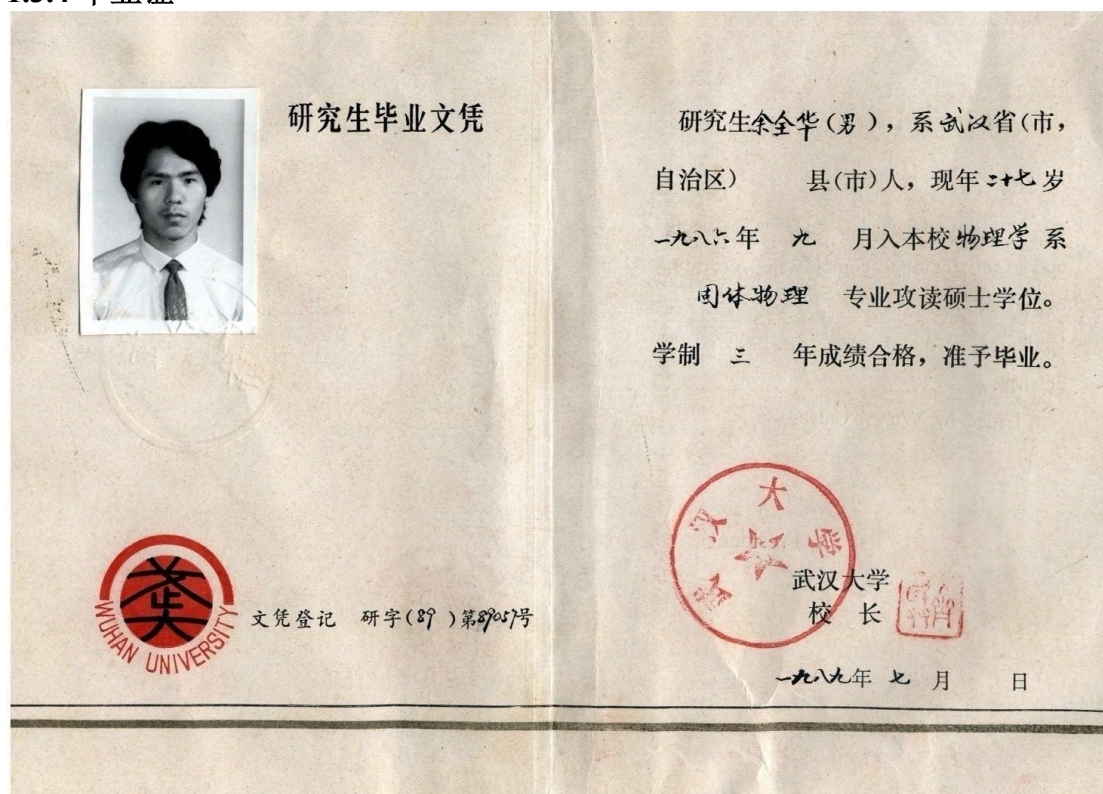 研究生毕业文凭
WUHAN UNIVERSITY
文凭登记 研字(89)第89057号
研究生余全华(男),系武汉省(市,
自治区) 县(市)人,现年二十七岁
一九八六年 九 月入本校物理学系
固体物理 专业攻读硕士学位。
学制 三 年成绩合格,准予毕业。
武汉大学
武汉大学
校 长
一九八九年 七 月 日